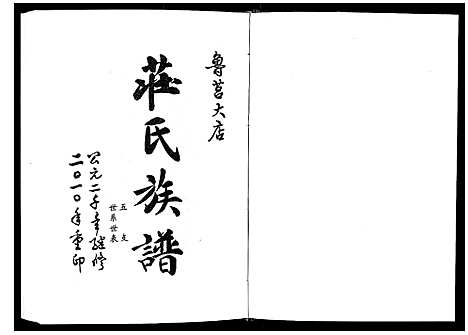 魯莒大店
莊氏族譜
五支
世系世表
公元二千年續修
二〇一〇年重印